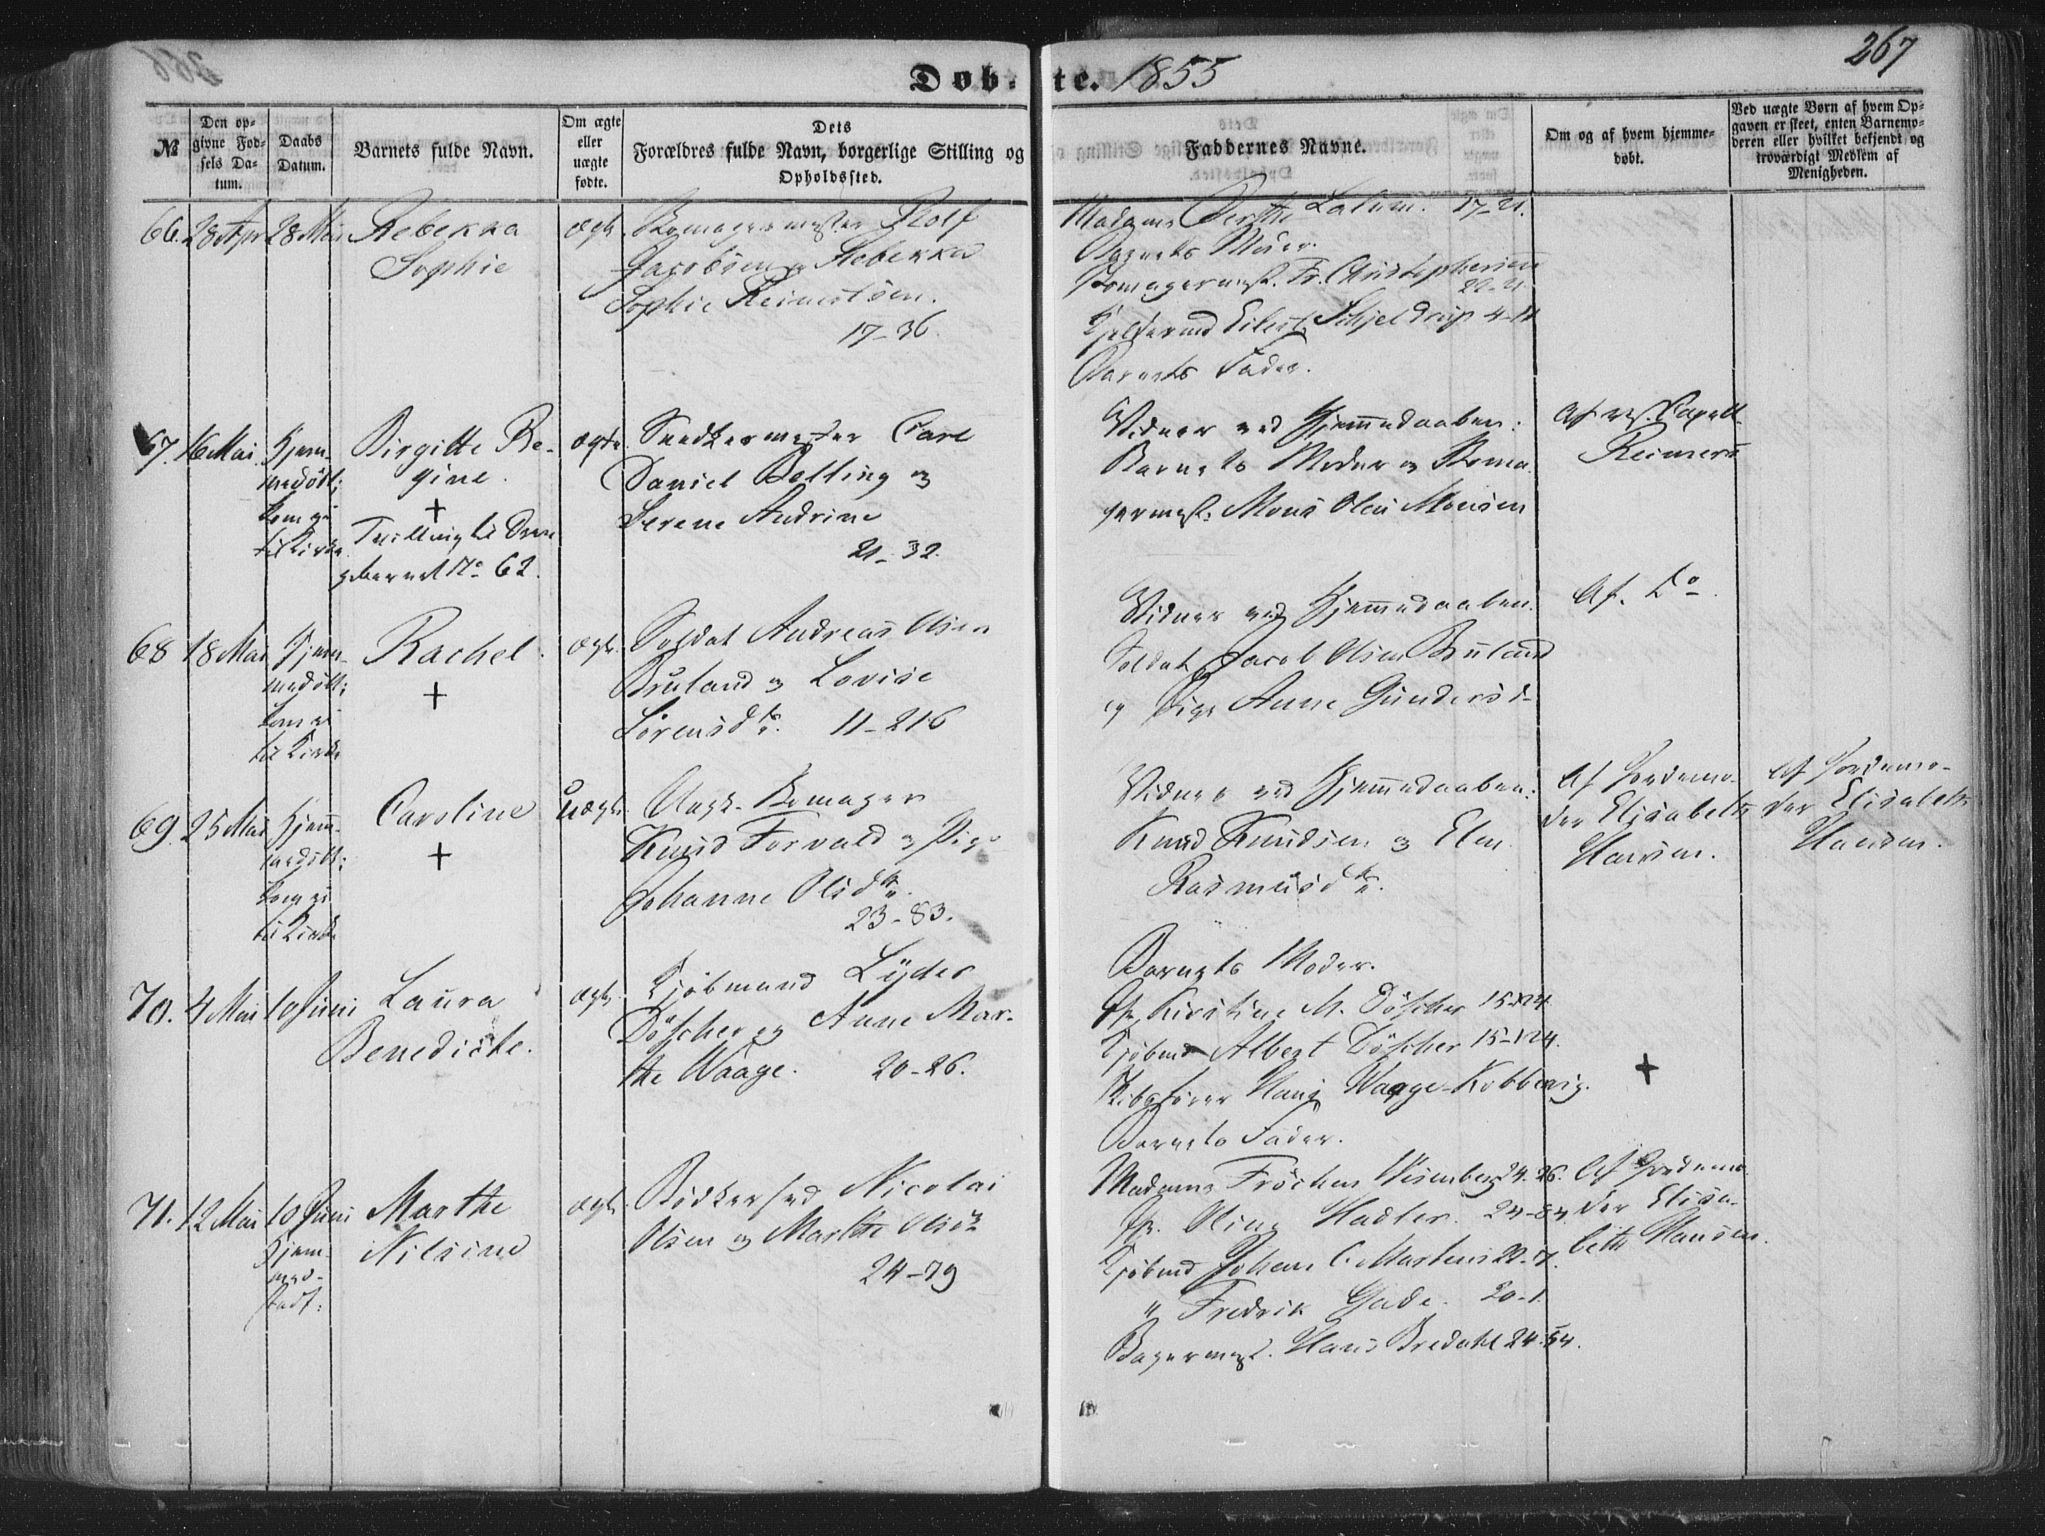 Døb-te. 1855
267
№
Den op-
givne Fød-
sels Da-
tum.
Daabs
Datum.
Barnets fulde Navn.
Om ægte
eller
uægte
fødte.
Dets
Forældres fulde Navn, borgerlige Stilling og
Opholdssted.
Faddernes Navne.
Om og af hvem hjemme-
døbt.
Ved uægte Børn af hvem Op-
gaven er skeet, enten Barnemo-
deren eller hvilket bekjendt og
troværdigt Medlem af
Menigheden.
66. 28 Apr 28 Mai Rebekka
Sophie
ægte
Rolf
Jacobsen og Rebekka
Sophie Reinertsen.
17-36.
Madame Berthe 17-21.
Barnets Moder.
Fr. Christophersen
22-21.
Eilert Schjeldrup 4-11
Barnets Fader.
67. 16 Mai Hjem-
medøbt;
kom ei
til Kirke
Birgitte Re-
gine.
+
Tvilling til
No 62.
ægte
Snedkermester Carl
Daniel Belling og
Serene Andrine
21-32.
Vidner ved Hjemmedaaben:
Barnets Moder og
Mons Olai Monsen
Af res. Capell.
Reimers
68 18 Mai Hjem-
medøbt;
kom ei
til Kirke
Rachel.
+
ægte
Soldat Andreas Olsen
Bruland og Lovise
Sørensdtr. 11-216
Vidner ved Hjemmedaaben.
Soldat Jacob Olsen Bruland
og Pige Anne Gundersd-
Af. Do.
69. 25 Mai Hjem-
medøbt;
kom ei
til Kirke
Caroline
+
Uægte
Ungk.
Knud Torvald og Pige
Johanne Olsdtr.
23-83.
Vidner ved Hjemmedaaben:
Knud Knudsen og Elen
Rasmusdtr.
Af Jordemo-
der Elisabeth
Hansen.
Af Jordemo-
der Elisabeth
Hansen.
70. 4 Mai 10 Juni Laura
Benedicte.
ægte
Kjøbmand Lyder
Döscher og Anne Mar-
the Waage. 20-26.
Barnets Moder.
Kirstine M. Döscher 15-124.
Kjøbmd Albert Döscher 15-124.
Skibsfører Hans Waage-Kobbevig.
Barnets Fader.
+
71. 12 Mai 10 Juni
Hjem-
med-
Marthe
Nilsine
ægte
Bødkersvd Nicolai
Olsen og Marthe Olsdtr
24-79
Madame 24-26.
24-84
Kjøbmd Johan C. Martens 22-7.
" Fredrik Gade. 20-1.
Bagermest. Hans Bredahl 24-54.
Af Jordemo-
der Elisa-
beth Hansen.
+